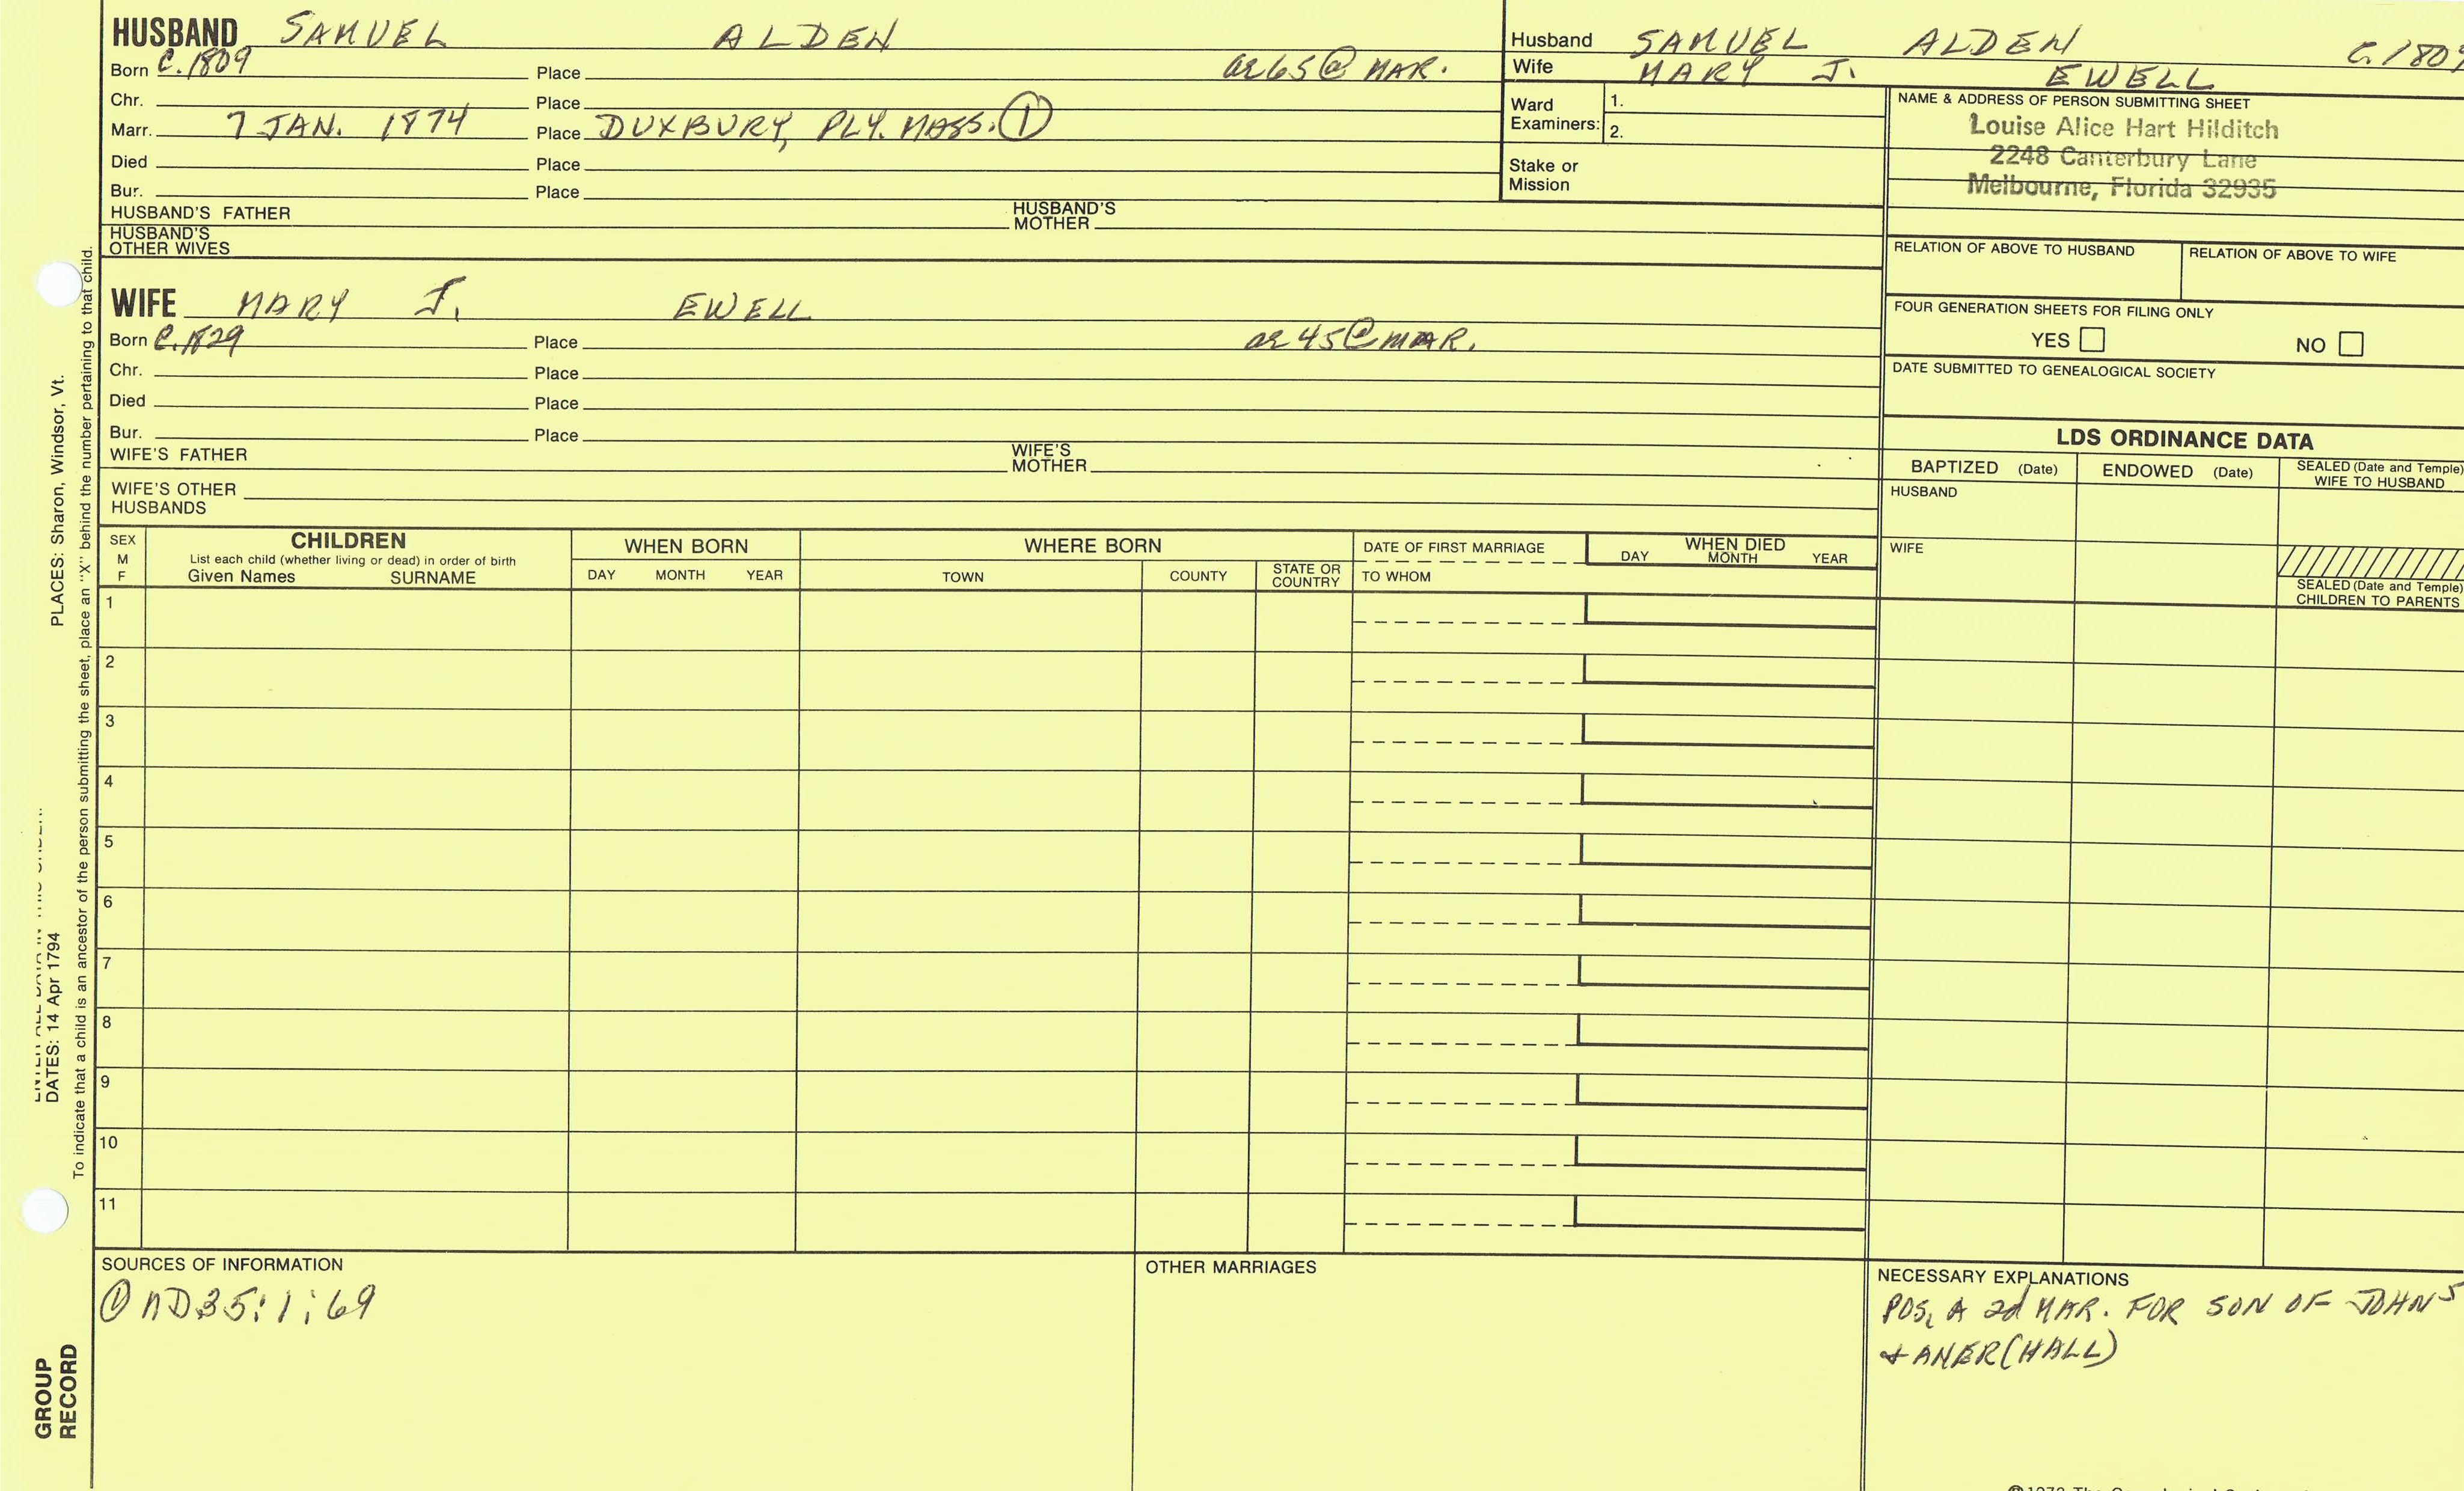 HUSBAND SAMUEL ALDEN
Born C.1809 Place ae 65 @ MAR.
Chr. Place
Marr. 7 JAN. 1874 Place DUXBURY, PLY. MASS. ①
Died Place
Bur. Place
HUSBAND'S FATHER HUSBAND'S MOTHER
HUSBAND'S OTHER WIVES
WIFE MARY J. EWELL
Born C.1829 Place ae 45 @ MAR.
Chr. Place
Died Place
Bur. Place
WIFE'S FATHER WIFE'S MOTHER
WIFE'S OTHER HUSBANDS
Husband SAMUEL ALDEN C.1809
Wife MARY J. EWELL
Ward Examiners: 1.
2.
Stake or Mission
NAME & ADDRESS OF PERSON SUBMITTING SHEET
Louise Alice Hart Hilditch
2248 Canterbury Lane
Melbourne, Florida 32935
RELATION OF ABOVE TO HUSBAND RELATION OF ABOVE TO WIFE
FOUR GENERATION SHEETS FOR FILING ONLY
YES NO
DATE SUBMITTED TO GENEALOGICAL SOCIETY
LDS ORDINANCE DATA
BAPTIZED (Date) ENDOWED (Date) SEALED (Date and Temple) WIFE TO HUSBAND
HUSBAND
WIFE
SEALED (Date and Temple) CHILDREN TO PARENTS
SEX M F
CHILDREN
List each child (whether living or dead) in order of birth
Given Names SURNAME
WHEN BORN
DAY MONTH YEAR
WHERE BORN
TOWN COUNTY STATE OR COUNTRY
DATE OF FIRST MARRIAGE
TO WHOM
WHEN DIED
DAY MONTH YEAR
1
2
3
4
5
6
7
8
9
10
11
SOURCES OF INFORMATION
① MD35:1:69
OTHER MARRIAGES
NECESSARY EXPLANATIONS
POS. A 2d MAR. FOR SON OF JOHN5
+ ANER (HALL)
PLACES: Sharon, Windsor, Vt.
DATES: 14 Apr 1794
To indicate that a child is an ancestor of the person submitting the sheet, place an "X" behind the number pertaining to that child.
GROUP
RECORD